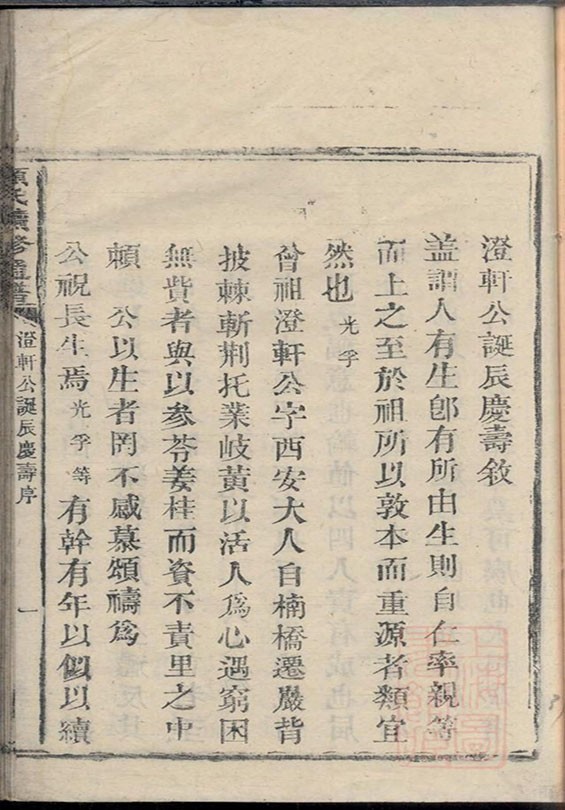 澄軒公誕辰慶壽敘
蓋謂人有生卽有所由生則自仁率親等
而上之至於祖所以敦本而重源者類宜
然也光孚
曾祖澄軒公字西安大人自楠橋遷嚴背
披棘斬荆托業岐黃以活人爲心遇窮困
無貲者與以參苓姜桂而資不責里之中
賴 公以生者罔不感慕頌禱爲
公視長生焉光孚等有幹有年以似以續
氏續修通譜
澄軒公誕辰慶壽序
一